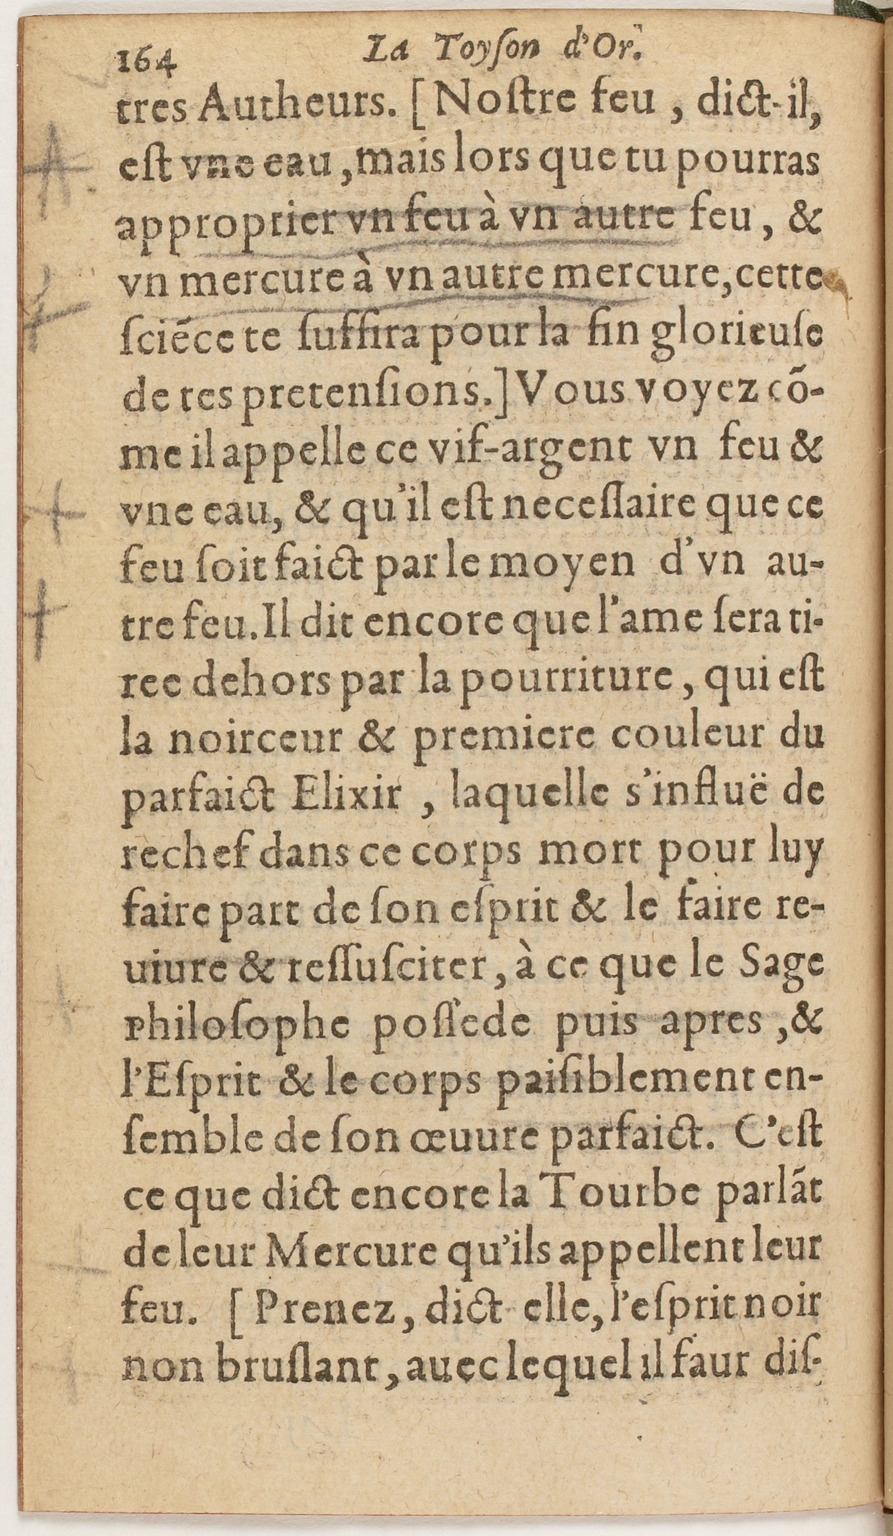 164 La Toyſon d'Or.
tres Autheurs. [Noſtre feu , dict-il,
eſt vne eau, mais lors que tu pourras
approprier vn feu à vn autre feu, &
vn mercure à vn autre mercure, cette
ſciẽce te ſuffira pour la fin glorieuſe
de tes pretenſions.] Vous voyez cõ-
me il appelle ce vif-argent vn feu &
vne eau, & qu'il eſt neceſſaire que ce
feu ſoit faict par le moyen d'vn au-
tre feu. Il dit encore que l'ame ſera ti-
ree dehors par la pourriture, qui eſt
la noirceur & premiere couleur du
parfaict Elixir , laquelle s'influë de
rechef dans ce corps mort pour luy
faire part de ſon eſprit & le faire re-
uiure & reſſuſciter, à ce que le Sage
Philoſophe poſſede puis apres ,&
l'Eſprit & le corps paiſiblement en-
ſemble de ſon œuure parfaict. C'eſt
ce que dict encore la Tourbe parlãt
de leur Mercure qu'ils appellent leur
feu. [ Prenez, dict elle, l'eſprit noir
non bruſlant, auec lequel il faut diſ-